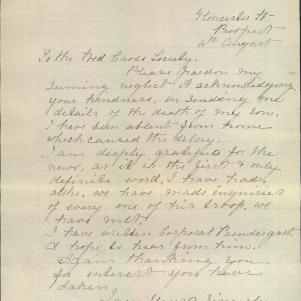 Gloucester St
Prospect
4th August
To the Red Cross Society.
Please pardon my
seeming neglect of acknowledging
your kindness, in sending me
details of the death of my son.
I have been absent from home
which caused the delay.
I am deeply grateful for the
news, as it is the first & only
definite word, I have had,
altho, we have made inquiries
of every one of his troop, we
have met.
I have written Corporal Prendergast
& hope to hear from him.
Again thanking you
for interest you have
taken